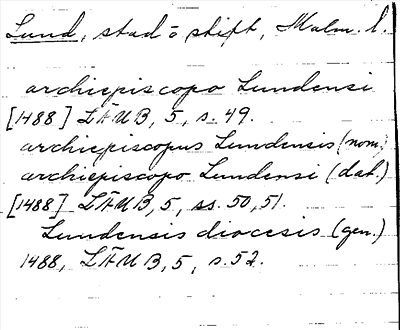 Lund, stad o stift, Malm. l.
archiepiscopo Lundensi
[1488] LÄUB, 5, s. 49.
archiepiscopus Lundensis (nom.)
archiepiscopo Lundensi (dat.)
[1488] LÄUB, 5, ss. 50, 51.
Lundensis diocesis (gen.)
1488, LÄUB, 5, s. 52.